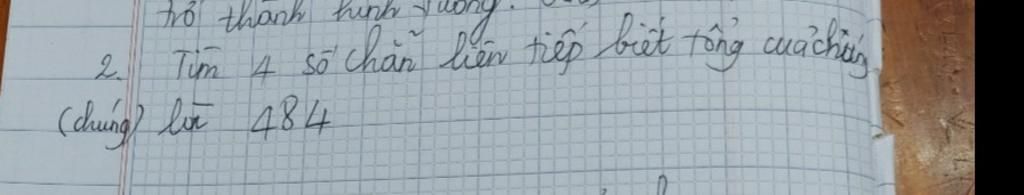 trở thành hình vuông.
2. Tìm 4 số chẵn liên tiếp biết tổng của chúng
(chúng) là 484